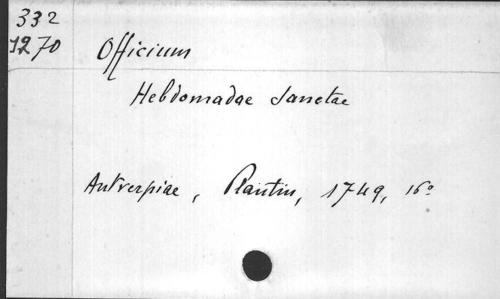 332
1270
Officium
Hebdomadae Sanctae
Antverpiae, Plantin, 1749, 16º